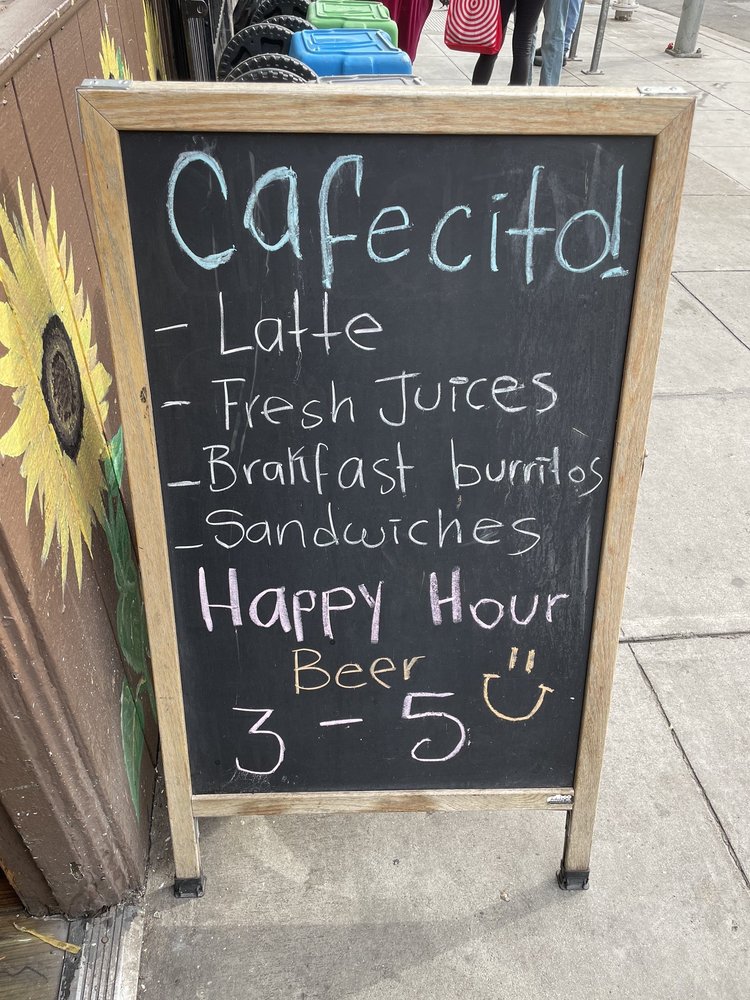 Cafecito!
- Latte
- Fresh Juices
- Brakfast burritos
- Sandwiches
Happy Hour
Beer
3 - 5